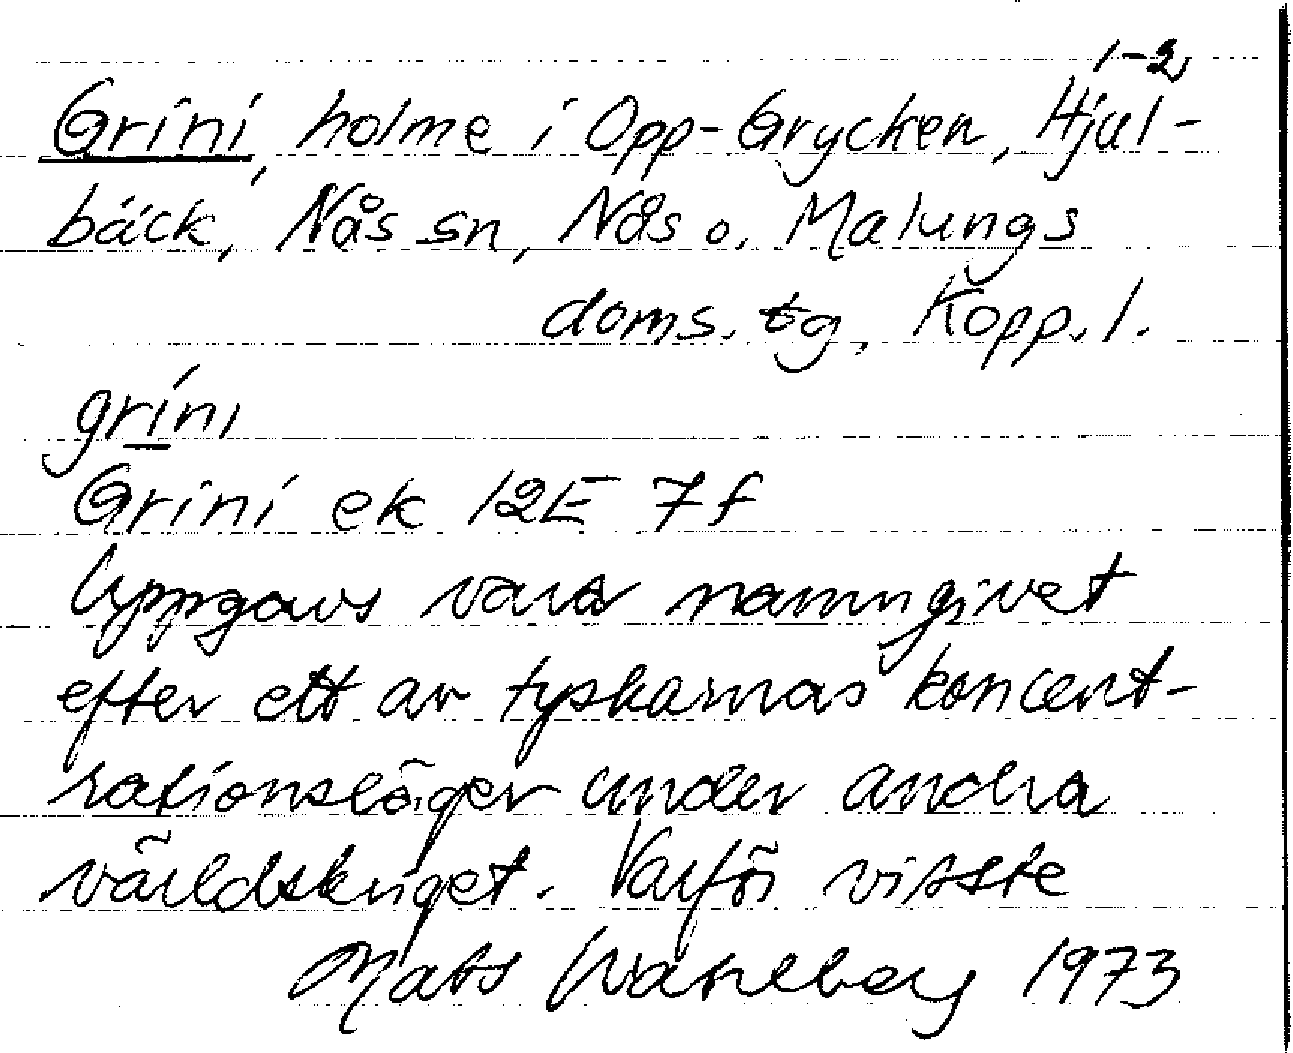 1-2
Grini, holme i Opp-Grycken, Hjul-
bäck, Nås sn, Nås o. Malungs
doms. tg, Kopp. l.
gríni
Grini ek 12E 7f
Uppgavs vara namngivet
efter ett av tyskarnas koncent-
rationsläger under andra
världskriget. Varför visste
Mats Wahlberg 1973